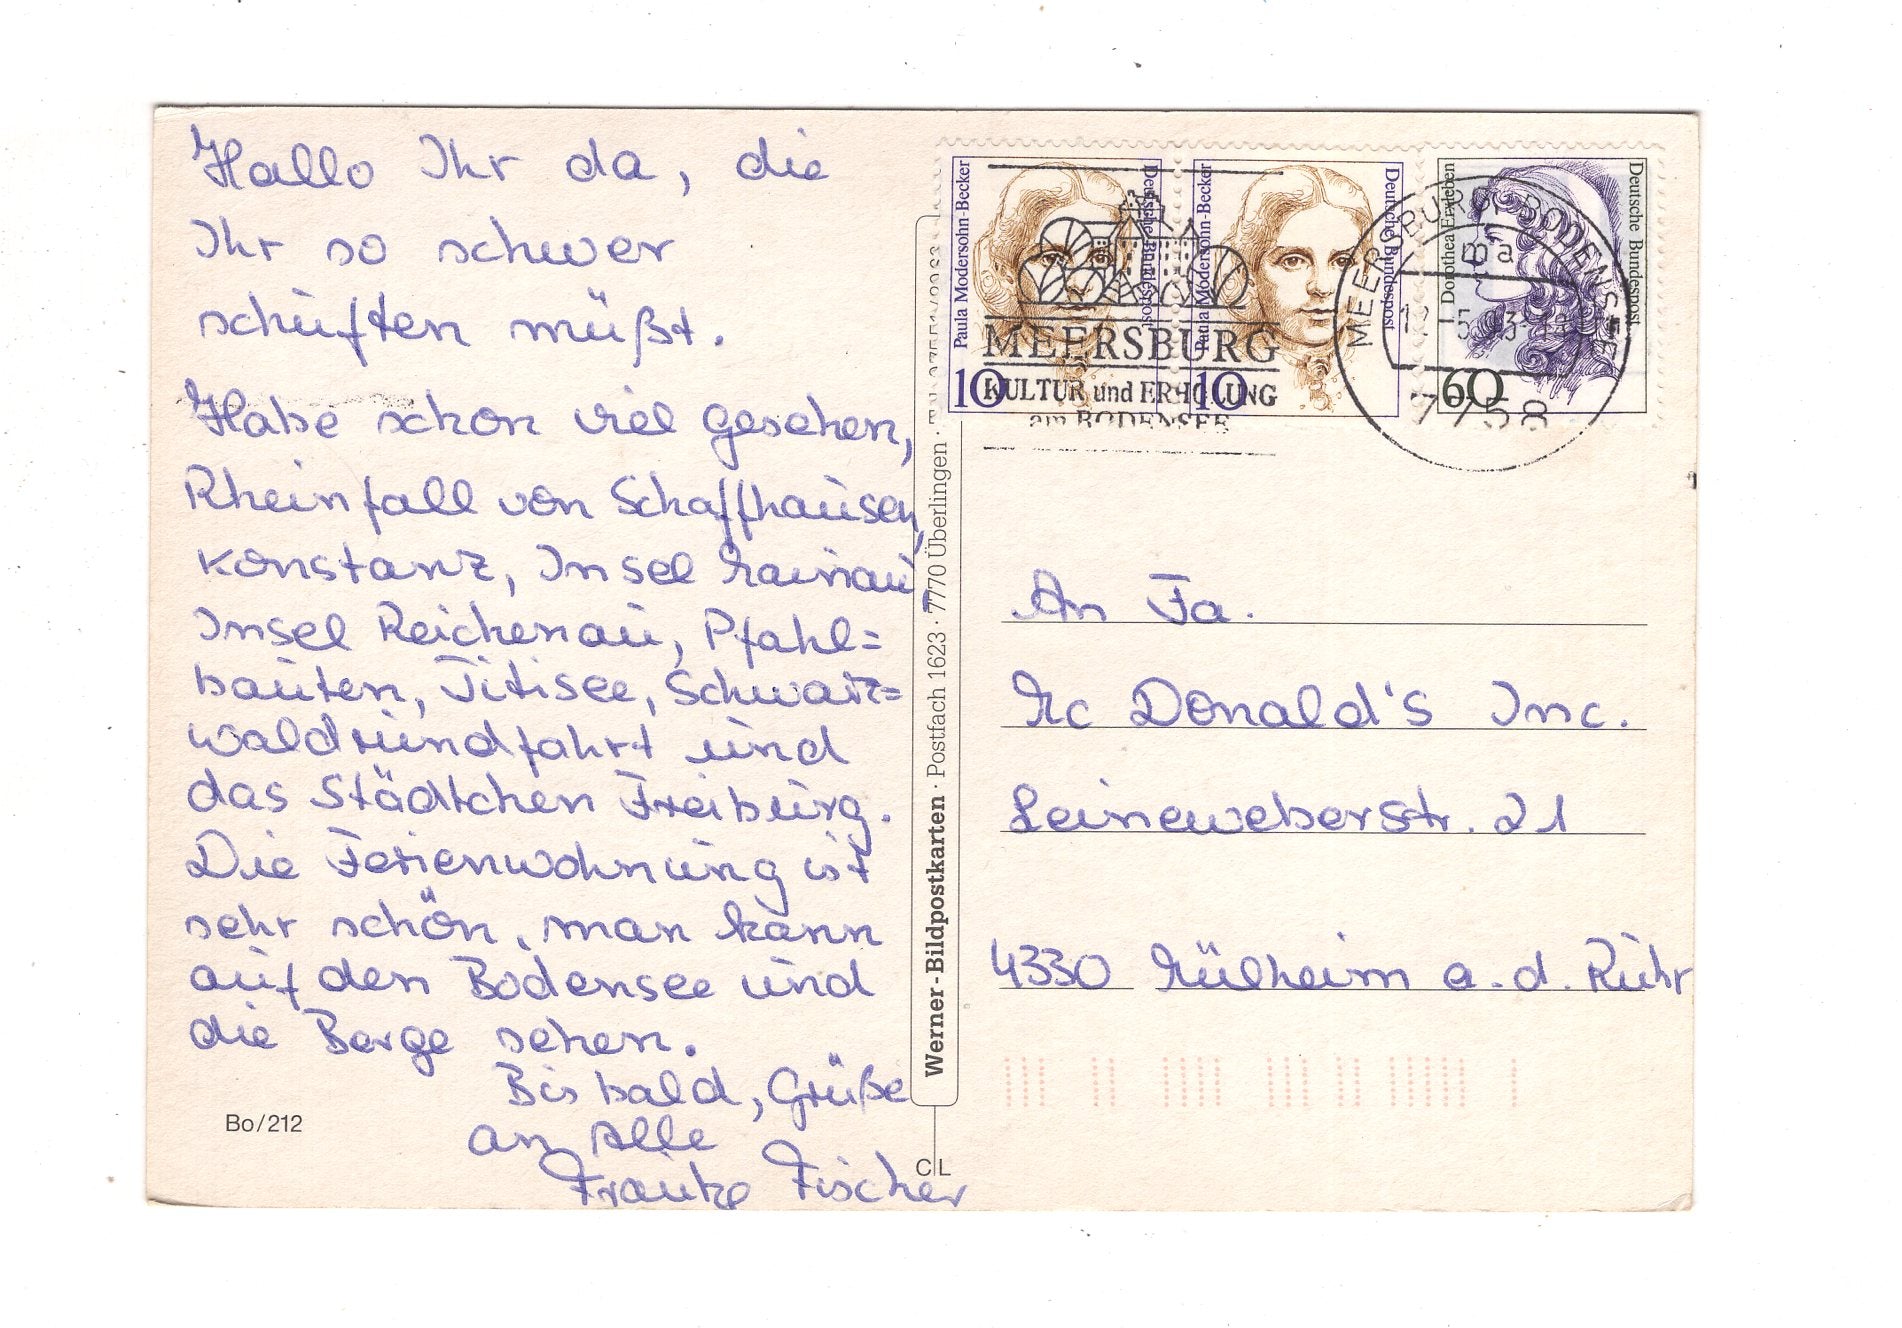 Hallo Ihr da, die
Ihr so schwer
schuften müßt.
Habe schon viel gesehen,
Rheinfall von Schaffhausen,
Konstanz, Insel Mainau,
Insel Reichenau, Pfahl=
bauten, Titisee, Schwarz=
waldrundfahrt und
das Städtchen Freiburg.
Die Ferienwohnung ist
sehr schön, man kann
auf den Bodensee und
die Berge sehen.
Bis bald, Grüße
an Alle
Frauke Fischer
Bo/212
Werner-Bildpostkarten · Postfach 1623 · 7770 Überlingen ·
CL
Paula Modersohn-Becker
Deutsche Bundespost
10
Paula Modersohn-Becker
Deutsche Bundespost
10
Dorothea Erxleben
Deutsche Bundespost
60
MEERSBURG
KULTUR und ERHOLUNG
am BODENSEE
MEERSBURG, BODENSEE
ma
7758
An Fa.
Mc Donald's Inc.
Leineweberstr. 21
4330 Mülheim a.d. Ruhr